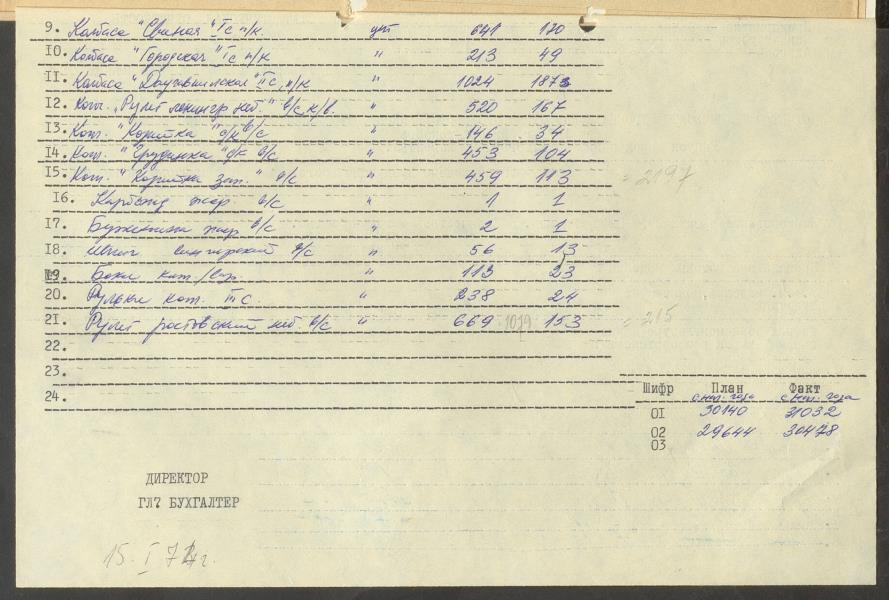 9. Колбаса "Свиная" Iс п/к цнт 641 170
10. Колбаса "Городская" Iс п/к " 213 49
11. Колбаса "Даугавпилская" IIс, п/к " 1024 187
12. Коп. "Рулет ленингр. в/с к/в. " 520 167
13. Коп. "Корейка" с/к в/с " 146 34
14. Коп. "Грудинка" с/к в/с " 453 104
15. Коп. "Корейка зап." в/с " 459 113 = 2197
16. Карбонад жар. в/с " 1 1
17. Буженина жар в/с " 2 1
18. Шпик венгерский в/с " 56 13
19. Баки коп./вар. " 113 23
20. Рульки коп. IIIс. " 238 24
21. Рулет ростовский в/с " 669 1019 153 = 215
22.
23.
24.
Шифр План Факт
с нач. года с нач. года
01 30140 31032
02 29644 30478
03
ДИРЕКТОР
ГЛ7 БУХГАЛТЕР
15. I 74г.